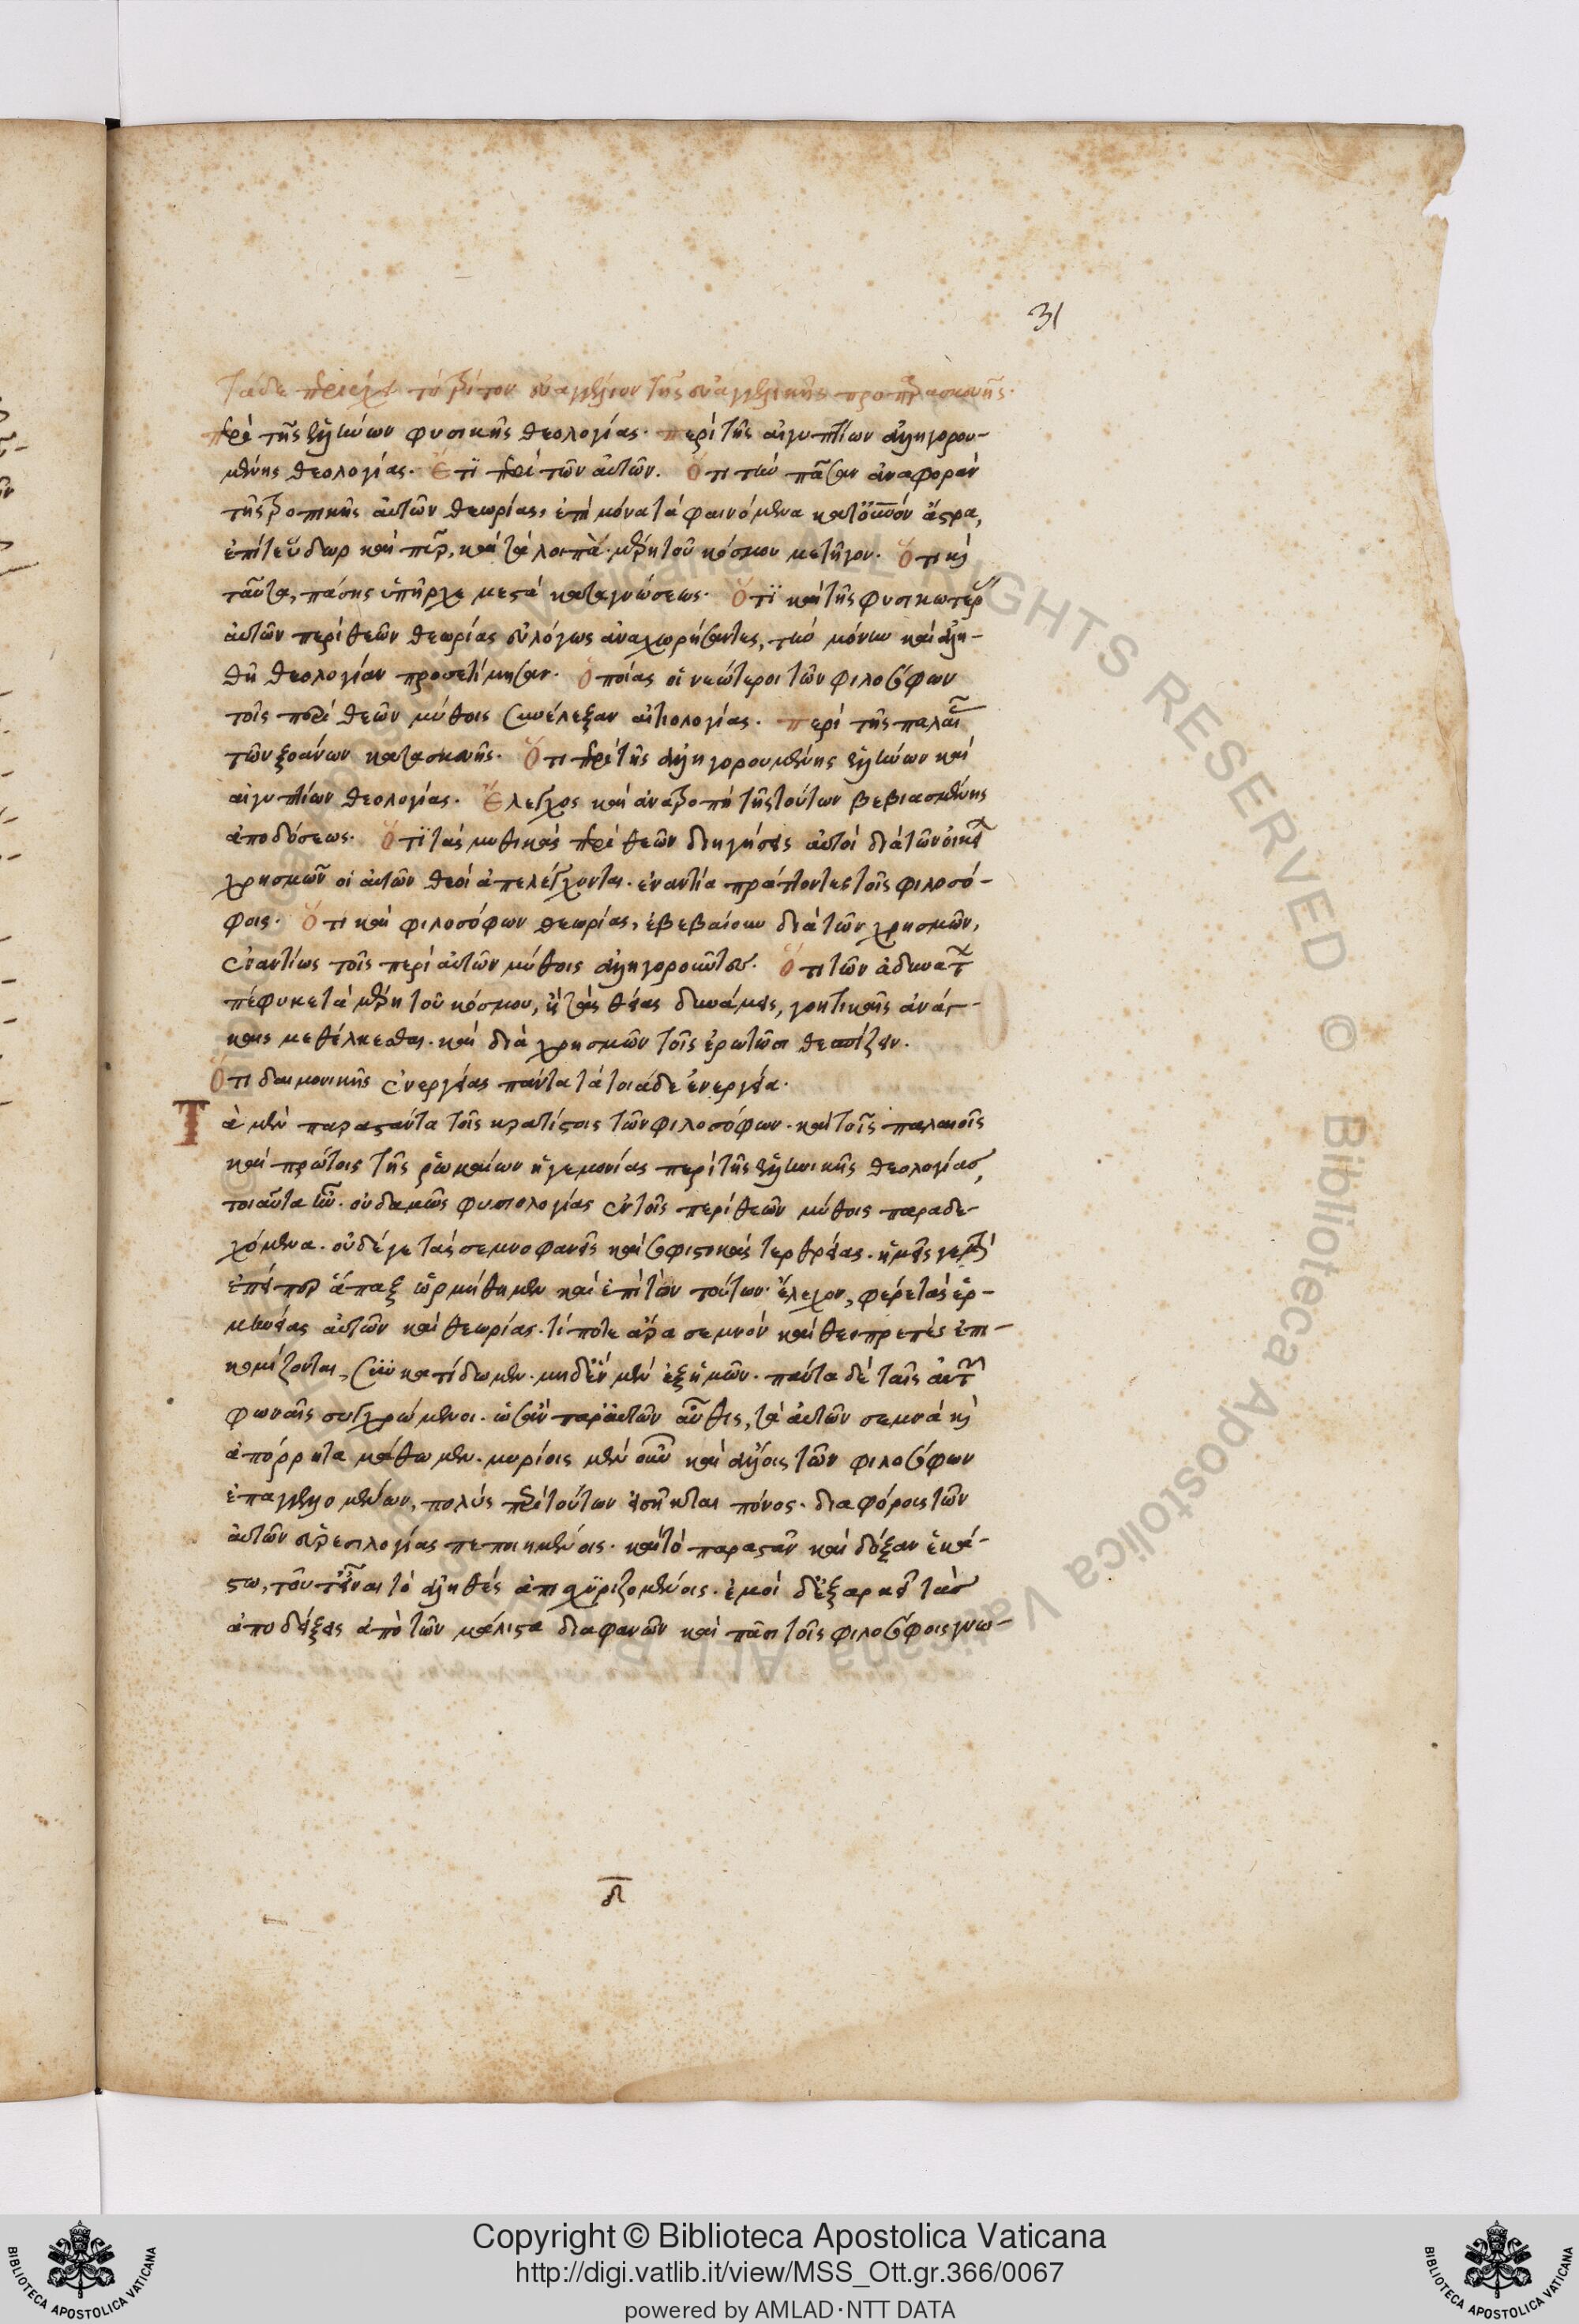 31
Τάδε περιέχει τὸ τρίτον εὐαγγέλιον τῆς εὐαγγελικῆς προπαρασκευῆς.
περὶ τῆς ἑλλήνων φυσικῆς θεολογίας. περὶ τῆς αἰγυπτίων ἀλληγορου-
μένης θεολογίας. Ἔτι περὶ τῶν αὐτῶν. Ὅτι τὴν πᾶσαν ἀναφορὰν
τῆς τροπικῆς αὐτῶν θεωρίας, ἐπὶ μόνα τὰ φαινόμενα κατ' οὐρανόν ἄστρα,
ἐπί τε ὕδωρ καὶ πῦρ, καὶ τὰ λοιπὰ μέρη τοῦ κόσμου μετῆγον. Ὅτι καὶ
ταῦτα, πάσης ὑπῆρχε μεστὰ καταγνώσεως. Ὅτι καὶ τῆς φυσικωτέρας
αὐτῶν περὶ θεῶν θεωρίας εὐλόγως ἀναχωρήσαντες, τὴν μόνην καὶ ἀλη-
θῆ θεολογίαν προσετίμησαν. Ὁποίας οἱ νεώτεροι τῶν φιλοσόφων
τοῖς περὶ θεῶν μύθοις συνέλεξαν αἰτιολογίας. περὶ τῆς παλαιᾶς
τῶν ξοάνων κατασκευῆς. Ὅτι περὶ τῆς ἀλληγορουμένης ἑλλήνων καὶ
αἰγυπτίων θεολογίας. Ἔλεγχος καὶ ἀνατροπὴ τῆς τούτων βεβιασμένης
ἀποδόσεως. Ὅτι τὰς μυθικὰς περὶ θεῶν διηγήσεις αὐτοὶ διὰ τῶν οἰκείων
χρησμῶν οἱ αὐτῶν θεοὶ ἀπελέγχονται. ἐναντία πράττοντες τοῖς φιλοσό-
φοις. Ὅτι καὶ φιλοσόφων θεωρίας, ἐβεβαίουν διὰ τῶν χρησμῶν,
ἐναντίως τοῖς περὶ αὐτῶν μύθοις ἀλληγοροῦντες. Ὅτι τῶν ἀδυνάτων
πέφυκε τὰ μέρη τοῦ κόσμου, ἢ τὰς θείας δυνάμεις, γοητικαῖς ἀνάγ-
καις μεθέλκεσθαι. καὶ διὰ χρησμῶν τοῖς ἐρωτῶσι θεσπίζειν.
Ὅτι δαιμονικῆς ἐνεργείας πάντα τὰ τοιάδε ἐνεργεῖα.
Τὰ μὲν παραστάντα τοῖς κρατίστοις τῶν φιλοσόφων. καὶ τοῖς παλαιοῖς
καὶ πρώτοις τῆς ῥωμαίων ἡγεμονίας περὶ τῆς ἑλληνικῆς θεολογίας,
τοιαῦτα ἦν. οὐδαμῶς φυσιολογίας ἐν τοῖς περὶ θεῶν μύθοις παραδε-
χόμενα. οὐδέ γε τὰς σεμνοφανεῖς καὶ σοφιστικὰς τερθρείας. ἡμεῖς γε μὴν
ἐπείπερ ἅπαξ ὡρμήθημεν καὶ ἐπὶ τὸν τούτων ἔλεγχον, φέρε τὰς ἑρ-
μηνείας αὐτῶν καὶ θεωρίας. τί ποτε ἄρα σεμνὸν καὶ θεοπρεπές ἐπι-
κομίζονται, συγκατίδωμεν. μηδὲν μὲν ἐξ ἡμῶν. πάντα δὲ ταῖς αὐτῶν
φωναῖς συγχρώμενοι. ὡς ἂν παρ' αὐτῶν αὖθις, τὰ αὐτῶν σεμνὰ καὶ
ἀπόρρητα μάθωμεν. μυρίοις μὲν οὖν καὶ ἄλλοις τῶν φιλοσόφων
ἐπαγγελλομένων, πολὺς περὶ τούτων εἰσῆκται πόνος. διαφόροις τῶν
αὐτῶν εὑρεσιλογίας πεποιημένοις. καὶ τὸ παραστὰν καὶ δόξαν ἑκά-
στῳ, τοῦτ' εἶναι τὸ ἀληθές ἀπισχυριζομένοις. ἐμοὶ δ' ἐξαρκεῖ τὰς
ἀποδείξεις ἀπὸ τῶν μάλιστα διαφανῶν καὶ πᾶσι τοῖς φιλοσόφοις γνω-
Copyright © Biblioteca Apostolica Vaticana
http://digi.vatlib.it/view/MSS_Ott.gr.366/0067
powered by AMLAD·NTT DATA